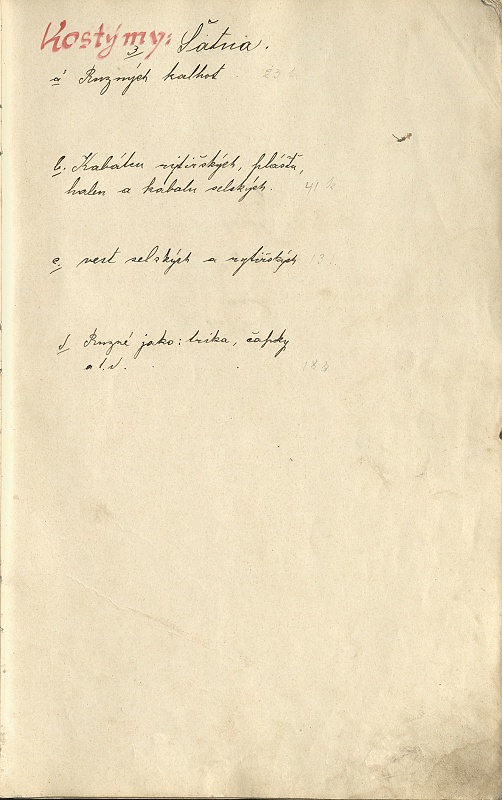 Kostýmy: Šatna.
3
a Ruzných kalhot 23 k
b. Kabátcu rytiřských, plášťu,
halen a kabatu selských. 41 k
c. vest selských a rytiřských 13
d Ruzné jako: trika, čapky
a t. d. 18 k